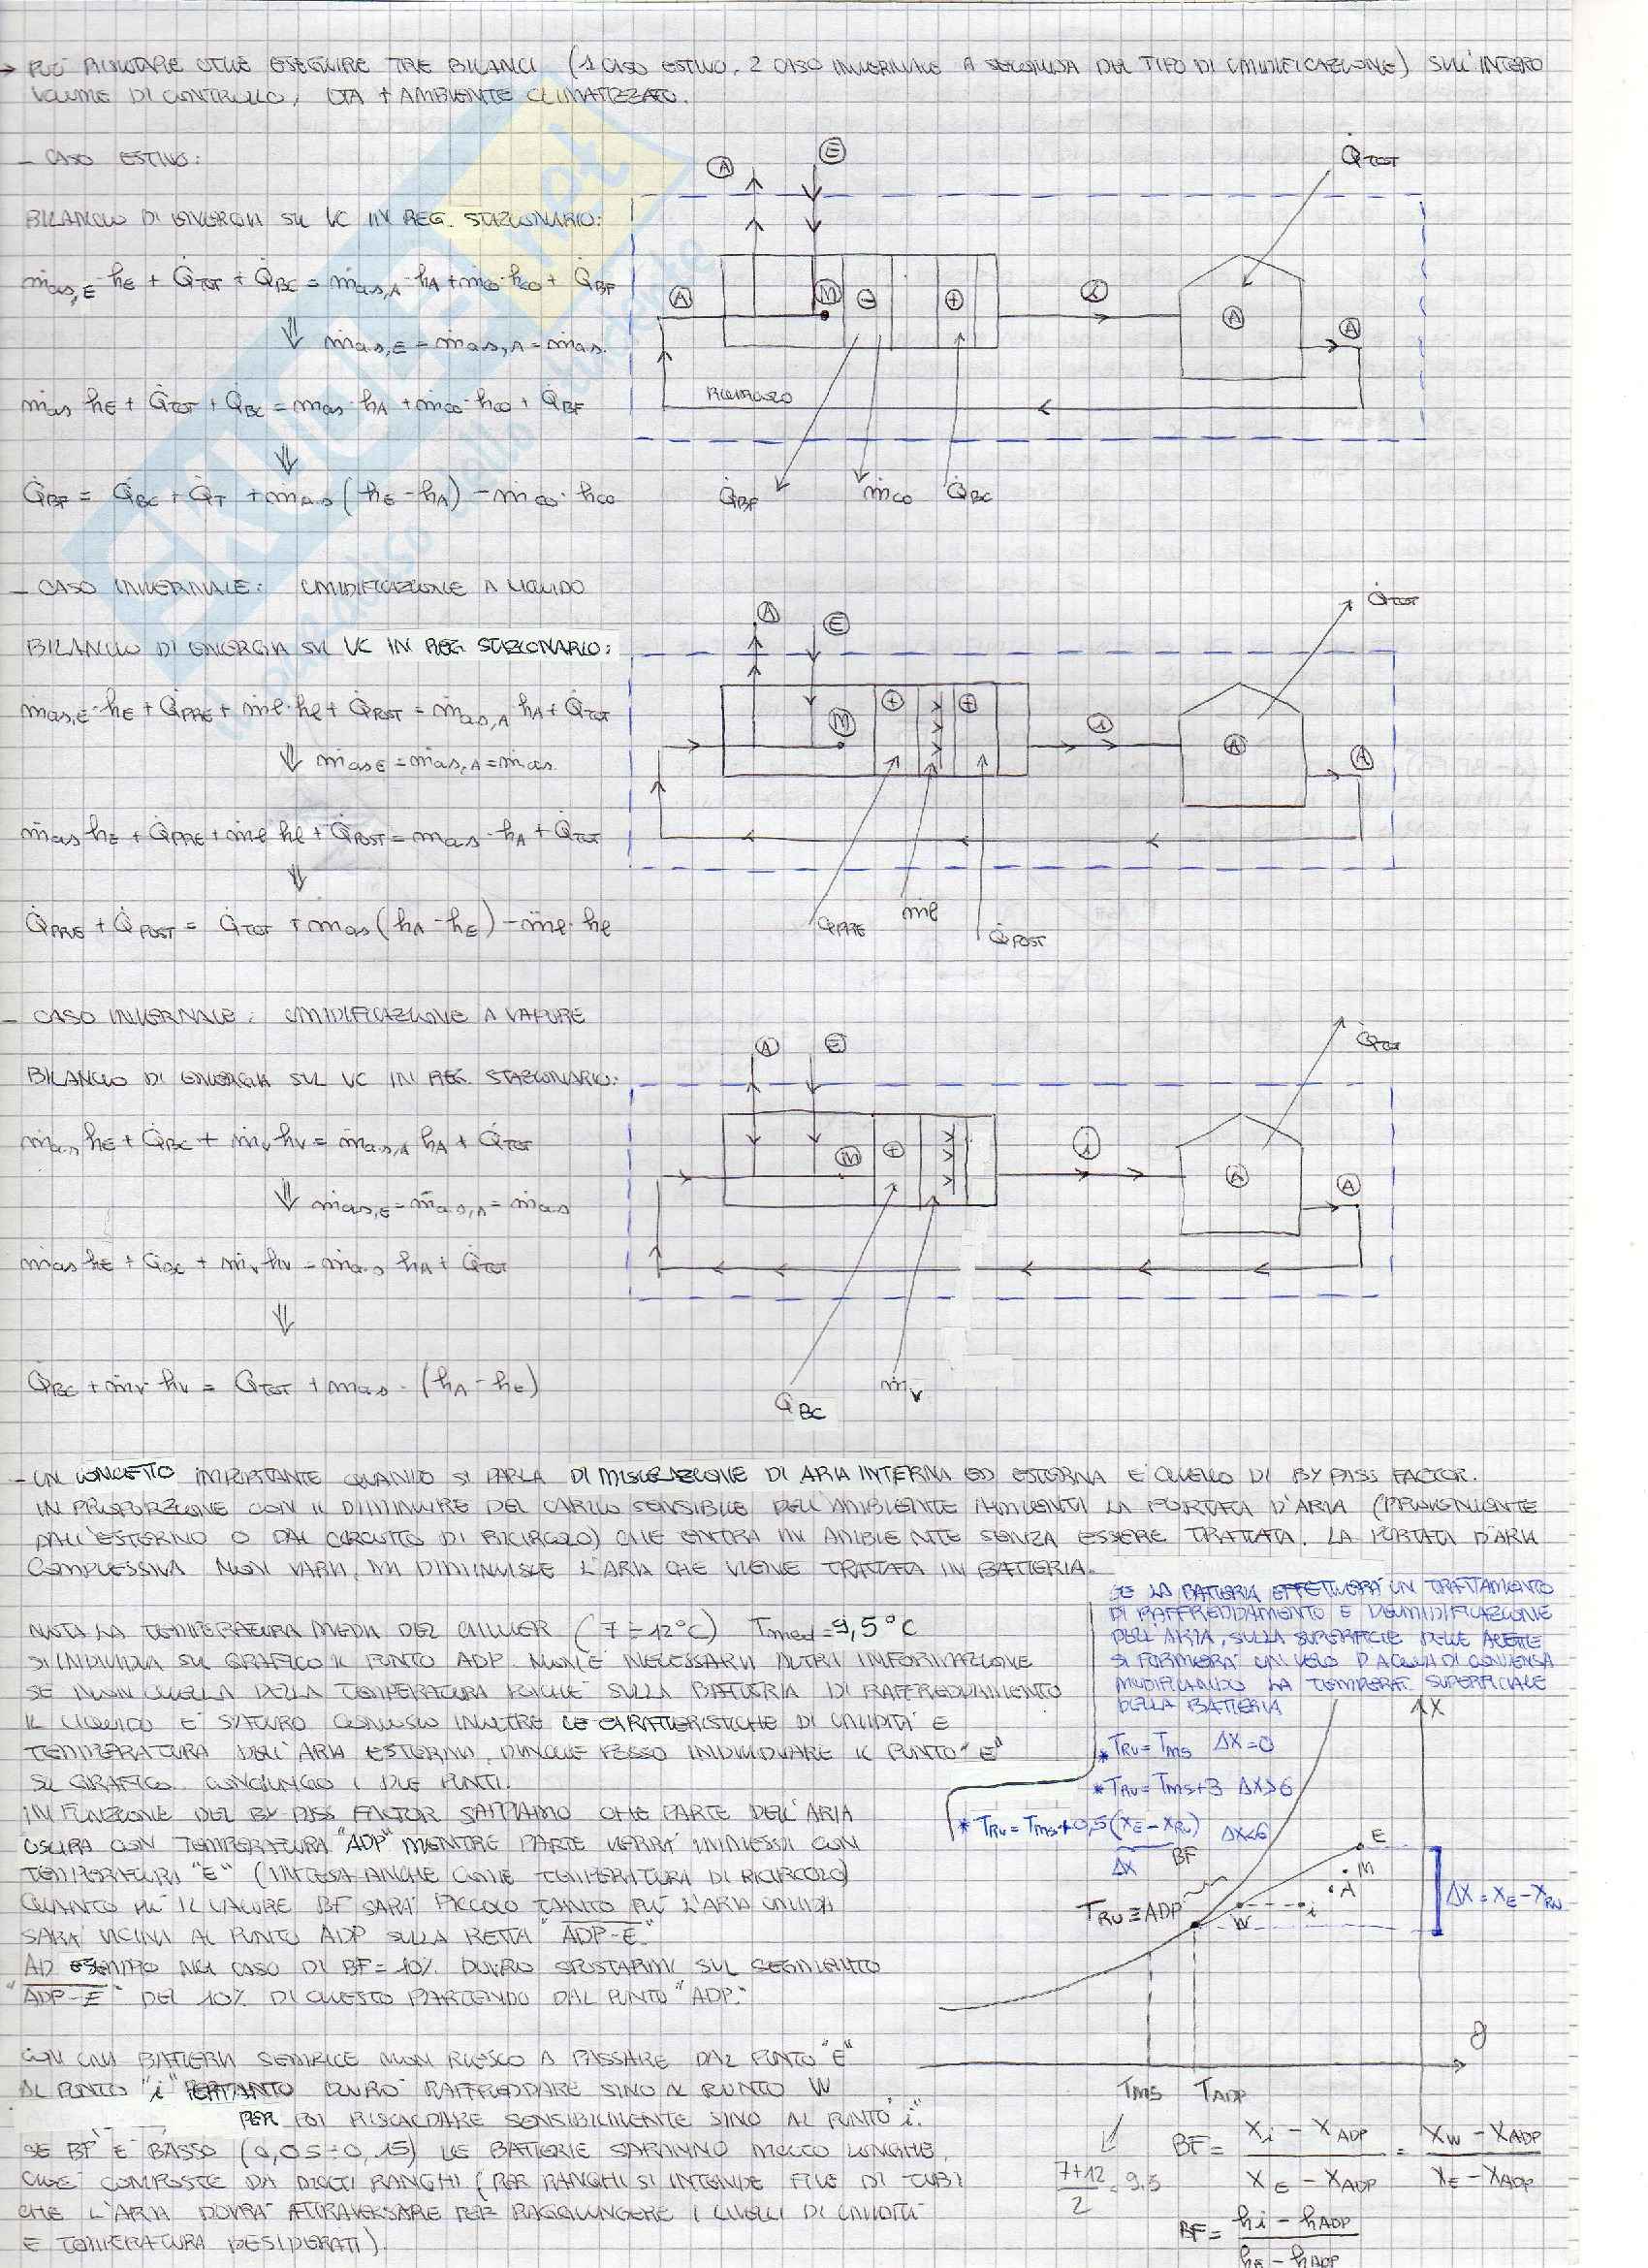 → PUÒ RISULTARE UTILE ESEGUIRE TRE BILANCI (1 CASO ESTIVO, 2 CASO INVERNALE A SECONDA DEL TIPO DI UMIDIFICAZIONE) SULL'INTERO
VOLUME DI CONTROLLO, UTA + AMBIENTE CLIMATIZZATO.
- CASO ESTIVO:
BILANCIO DI ENERGIA SU VC IN REG. STAZIONARIO:
ṁas,E·hE + Q̇TOT + Q̇BC = ṁas,A·hA + ṁco·hco + Q̇BF
⇓ ṁas,E = ṁas,A = ṁas.
ṁas hE + Q̇TOT + Q̇BC = ṁas·hA + ṁco·hco + Q̇BF
⇓
Q̇BF = Q̇BC + Q̇T + ṁas (hE - hA) - ṁco·hco
A E Q̇TOT
A M - + i A A
RICIRCOLO
Q̇BF ṁco Q̇BC
- CASO INVERNALE: UMIDIFICAZIONE A LIQUIDO
BILANCIO DI ENERGIA SU VC IN REG STAZIONARIO:
ṁas,E·hE + Q̇PRE + ṁl·hl + Q̇POST = ṁas,A hA + Q̇TOT
⇓ ṁasE = ṁas,A = ṁas.
ṁas hE + Q̇PRE + ṁl hl + Q̇POST = ṁas·hA + Q̇TOT
⇓
Q̇PRE + Q̇POST = Q̇TOT + ṁas (hA - hE) - ṁl·hl
A E Q̇TOT
M + + i A A
Q̇PRE ṁl Q̇POST
- CASO INVERNALE: UMIDIFICAZIONE A VAPORE
BILANCIO DI ENERGIA SUL VC IN REG. STAZIONARIO:
ṁas hE + Q̇BC + ṁv hv = ṁas,A hA + Q̇TOT
⇓ ṁas,E = ṁas,A = ṁas
ṁas hE + Q̇BC + ṁv hv = ṁas hA + Q̇TOT
⇓
Q̇BC + ṁv·hv = Q̇TOT + ṁas·(hA - hE)
A E Q̇TOT
M + i A A
Q̇BC ṁv
- UN CONCETTO IMPORTANTE QUANDO SI PARLA DI MISCELAZIONE DI ARIA INTERNA ED ESTERNA E' QUELLO DI BY PASS FACTOR.
IN PROPORZIONE CON IL DIMINUIRE DEL CARICO SENSIBILE DELL'AMBIENTE AUMENTA LA PORTATA D'ARIA (PROVENIENTE
DALL'ESTERNO O DAL CIRCUITO DI RICIRCOLO) CHE ENTRA IN AMBIENTE SENZA ESSERE TRATTATA. LA PORTATA D'ARIA
COMPLESSIVA NON VARIA, MA DIMINUISCE L'ARIA CHE VIENE TRATTATA IN BATTERIA.
NOTA LA TEMPERATURA MEDIA DEL CHILLER (7 ÷ 12°C) Tmed = 9,5°C
SI INDIVIDUA SUL GRAFICO IL PUNTO ADP. NON E' NECESSARIA ALTRA INFORMAZIONE
SE NON QUELLA DELLA TEMPERATURA POICHE' SULLA BATTERIA DI RAFFREDDAMENTO
IL LIQUIDO E' SATURO CONOSCO INOLTRE LE CARATTERISTICHE DI UMIDITA' E
TEMPERATURA DELL'ARIA ESTERNA, DUNQUE POSSO INDIVIDUARE IL PUNTO "E"
SU GRAFICO. CONGIUNGO I DUE PUNTI.
IN FUNZIONE DEL BY PASS FACTOR SAPPIAMO CHE PARTE DELL'ARIA
USCIRA CON TEMPERATURA "ADP" MENTRE PARTE VERRA' IMMESSA CON
TEMPERATURA "E" (INTESA ANCHE COME TEMPERATURA DI RICIRCOLO)
QUANTO PIU' IL VALORE BF SARA' PICCOLO TANTO PIU' L'ARIA UMIDA
SARA' VICINA AL PUNTO ADP SULLA RETTA "ADP-E".
AD ESEMPIO NEL CASO DI BF = 10% DOVRO SPOSTARMI SUL SEGMENTO
"ADP-E" DEL 10% DI QUESTO PARTENDO DAL PUNTO "ADP."
CON UNA BATTERIA SEMPLICE NON RIESCO A PASSARE DAL PUNTO "E"
AL PUNTO "i" PERTANTO DOVRO' RAFFREDDARE SINO AL PUNTO W
PER POI RISCALDARE SENSIBILMENTE SINO AL PUNTO i.
SE BF E' BASSO (0,05 ÷ 0,15) LE BATTERIE SARANNO MOLTO LUNGHE,
CIOE' COMPOSTE DA DIECI RANGHI (PER RANGHI SI INTENDE FILE DI TUBI
CHE L'ARIA DOVRA' ATTRAVERSARE PER RAGGIUNGERE I LIVELLI DI UMIDITA'
E TEMPERATURA DESIDERATI).
SE LA BATTERIA EFFETTUERA' UN TRATTAMENTO
DI RAFFREDDAMENTO E DEUMIDIFICAZIONE
DELL'ARIA, SULLA SUPERFICIE DELLE ALETTE
SI FORMERA' UN VELO D'ACQUA DI CONDENSA
MODIFICANDO LA TEMPERAT. SUPERFICIALE
DELLA BATTERIA
* TRU = TMS ΔX = 0
* TRU = TMS + 3 ΔX > 6
* TRU = TMS + 0,5 (XE - XRU) ΔX < 6
ΔX
X
BF
E
M
A
TRU ≡ ADP
W i
ΔX = XE - XRU
ϑ
TMS TADP
7+12/2 = 9,5
BF = Xi - XADP / XE - XADP = XW - XADP / XE - XADP
BF = hi - hADP / hE - hADP